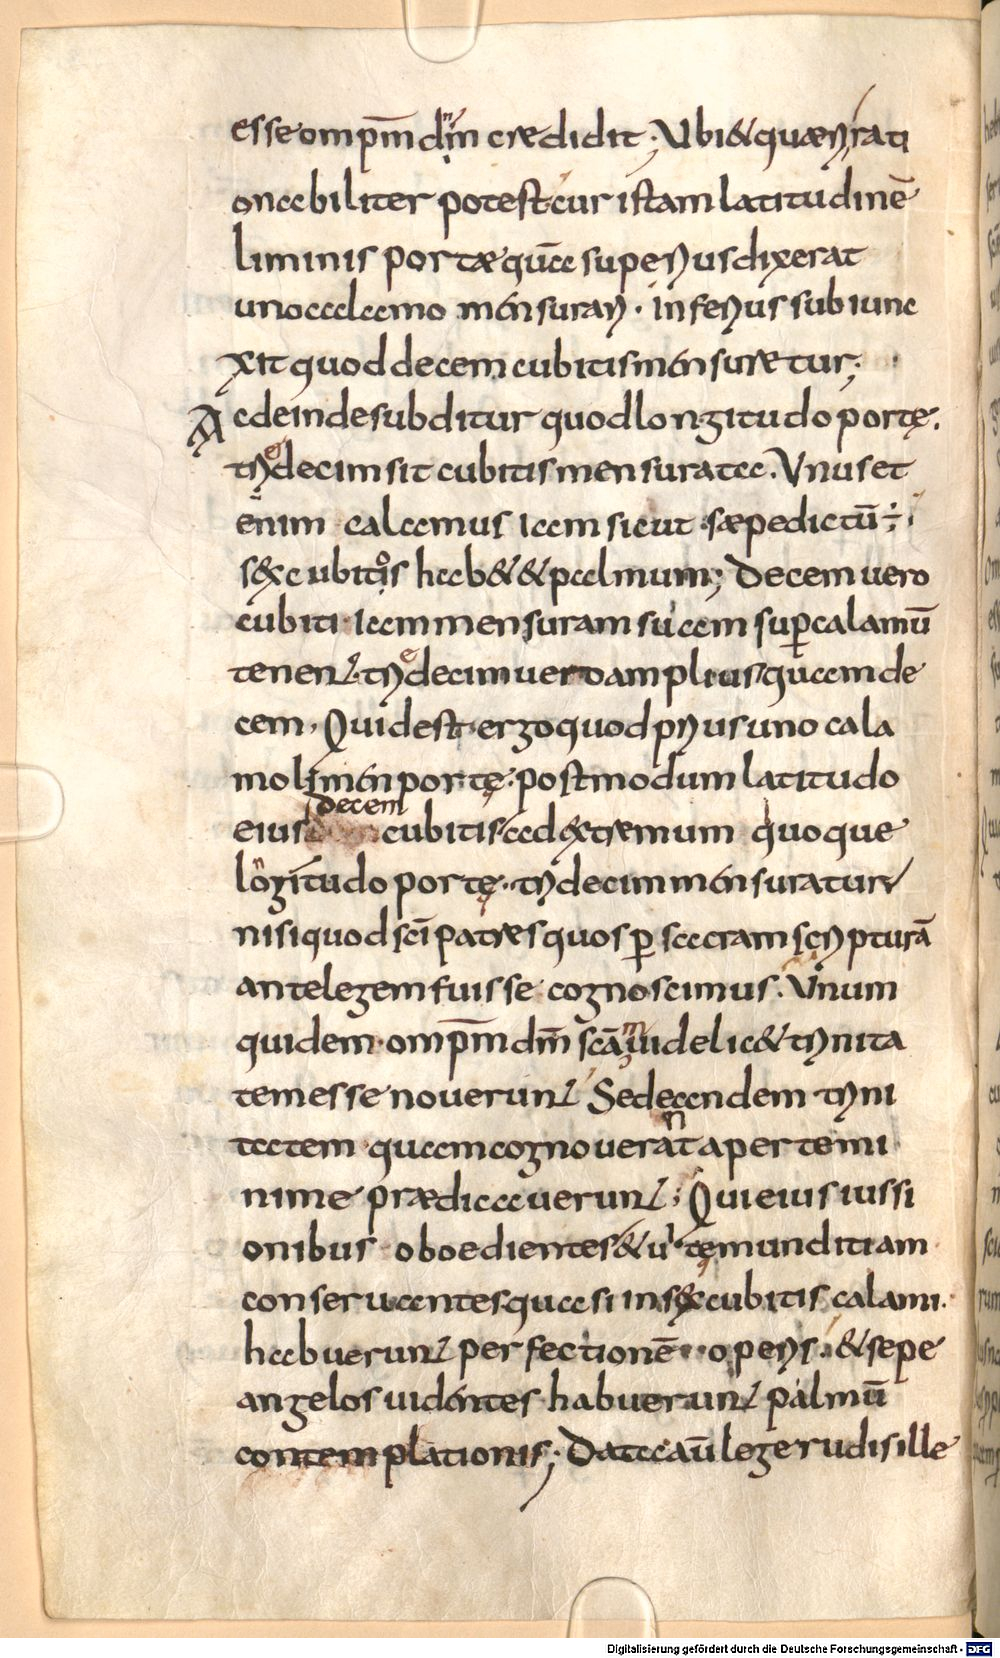 esse ompm dnm credidit; Ubi & quæri rati
onabiliter potest cur istam latitudinē
liminis portæ quā superius dixerat
uno calamo mensurari. inferius subiunc
xit quod decem cubitis mensuretur;
Ac deinde subditur quod longitudo portę.
tredecim sit cubitis mensurata. Unus et
enim calamus iam sicut sæpe dictū ÷
sex cubitos hab& & palmum; Decem uero
cubiti iam mensuram suam sup calamū
tenent. tredecim uero amplius quam de
cem. Quid est ergo quod prius uno cala
mo limen portę. postmodum latitudo
eius decem cubitis ad extremum quoque
longitudo portę. tredecim mensuratur
nisi quod sci patres quos p sacram scripturā
ante legem fuisse cognoscimus. Unum
quidem ompm dm scām uidelic& trinita
tem esse nouerunt Sed eandem trini
tatem quam cognouerant aperte mi
nime prædicauerunt; Qui eius iussi
onibus oboedientes & uitę munditiam
conseruantes quasi in sex cubitis calami.
habuerunt perfectionē operis. & sepe
angelos uidentes habuerunt palmū
contemplationis; Data aū lege rudis ille
Digitalisierung gefördert durch die Deutsche Forschungsgemeinschaft - DFG